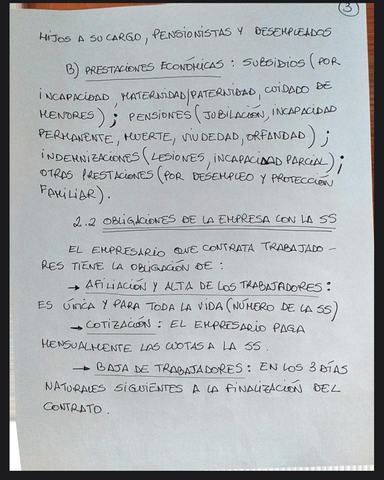 3
HIJOS A SU CARGO, PENSIONISTAS Y DESEMPLEADOS
B) PRESTACIONES ECONÓMICAS: SUBSIDIOS (POR
INCAPACIDAD, MATERNIDAD/PATERNIDAD, CUIDADO DE
MENORES); PENSIONES (JUBILACIÓN, INCAPACIDAD
PERMANENTE, MUERTE, VIUDEDAD, ORFANDAD);
INDEMNIZACIONES (LESIONES, INCAPACIDAD PARCIAL);
OTRAS PRESTACIONES (POR DESEMPLEO Y PROTECCIÓN
FAMILIAR).
2.2 OBLIGACIONES DE LA EMPRESA CON LA SS
EL EMPRESARIO QUE CONTRATA TRABAJADO-
RES TIENE LA OBLIGACIÓN DE:
→ AFILIACIÓN Y ALTA DE LOS TRABAJADORES:
ES ÚNICA Y PARA TODA LA VIDA (NÚMERO DE LA SS)
→ COTIZACIÓN: EL EMPRESARIO PAGA
MENSUALMENTE LAS CUOTAS A LA SS.
→ BAJA DE TRABAJADORES: EN LOS 3 DÍAS
NATURALES SIGUIENTES A LA FINALIZACIÓN DEL
CONTRATO.